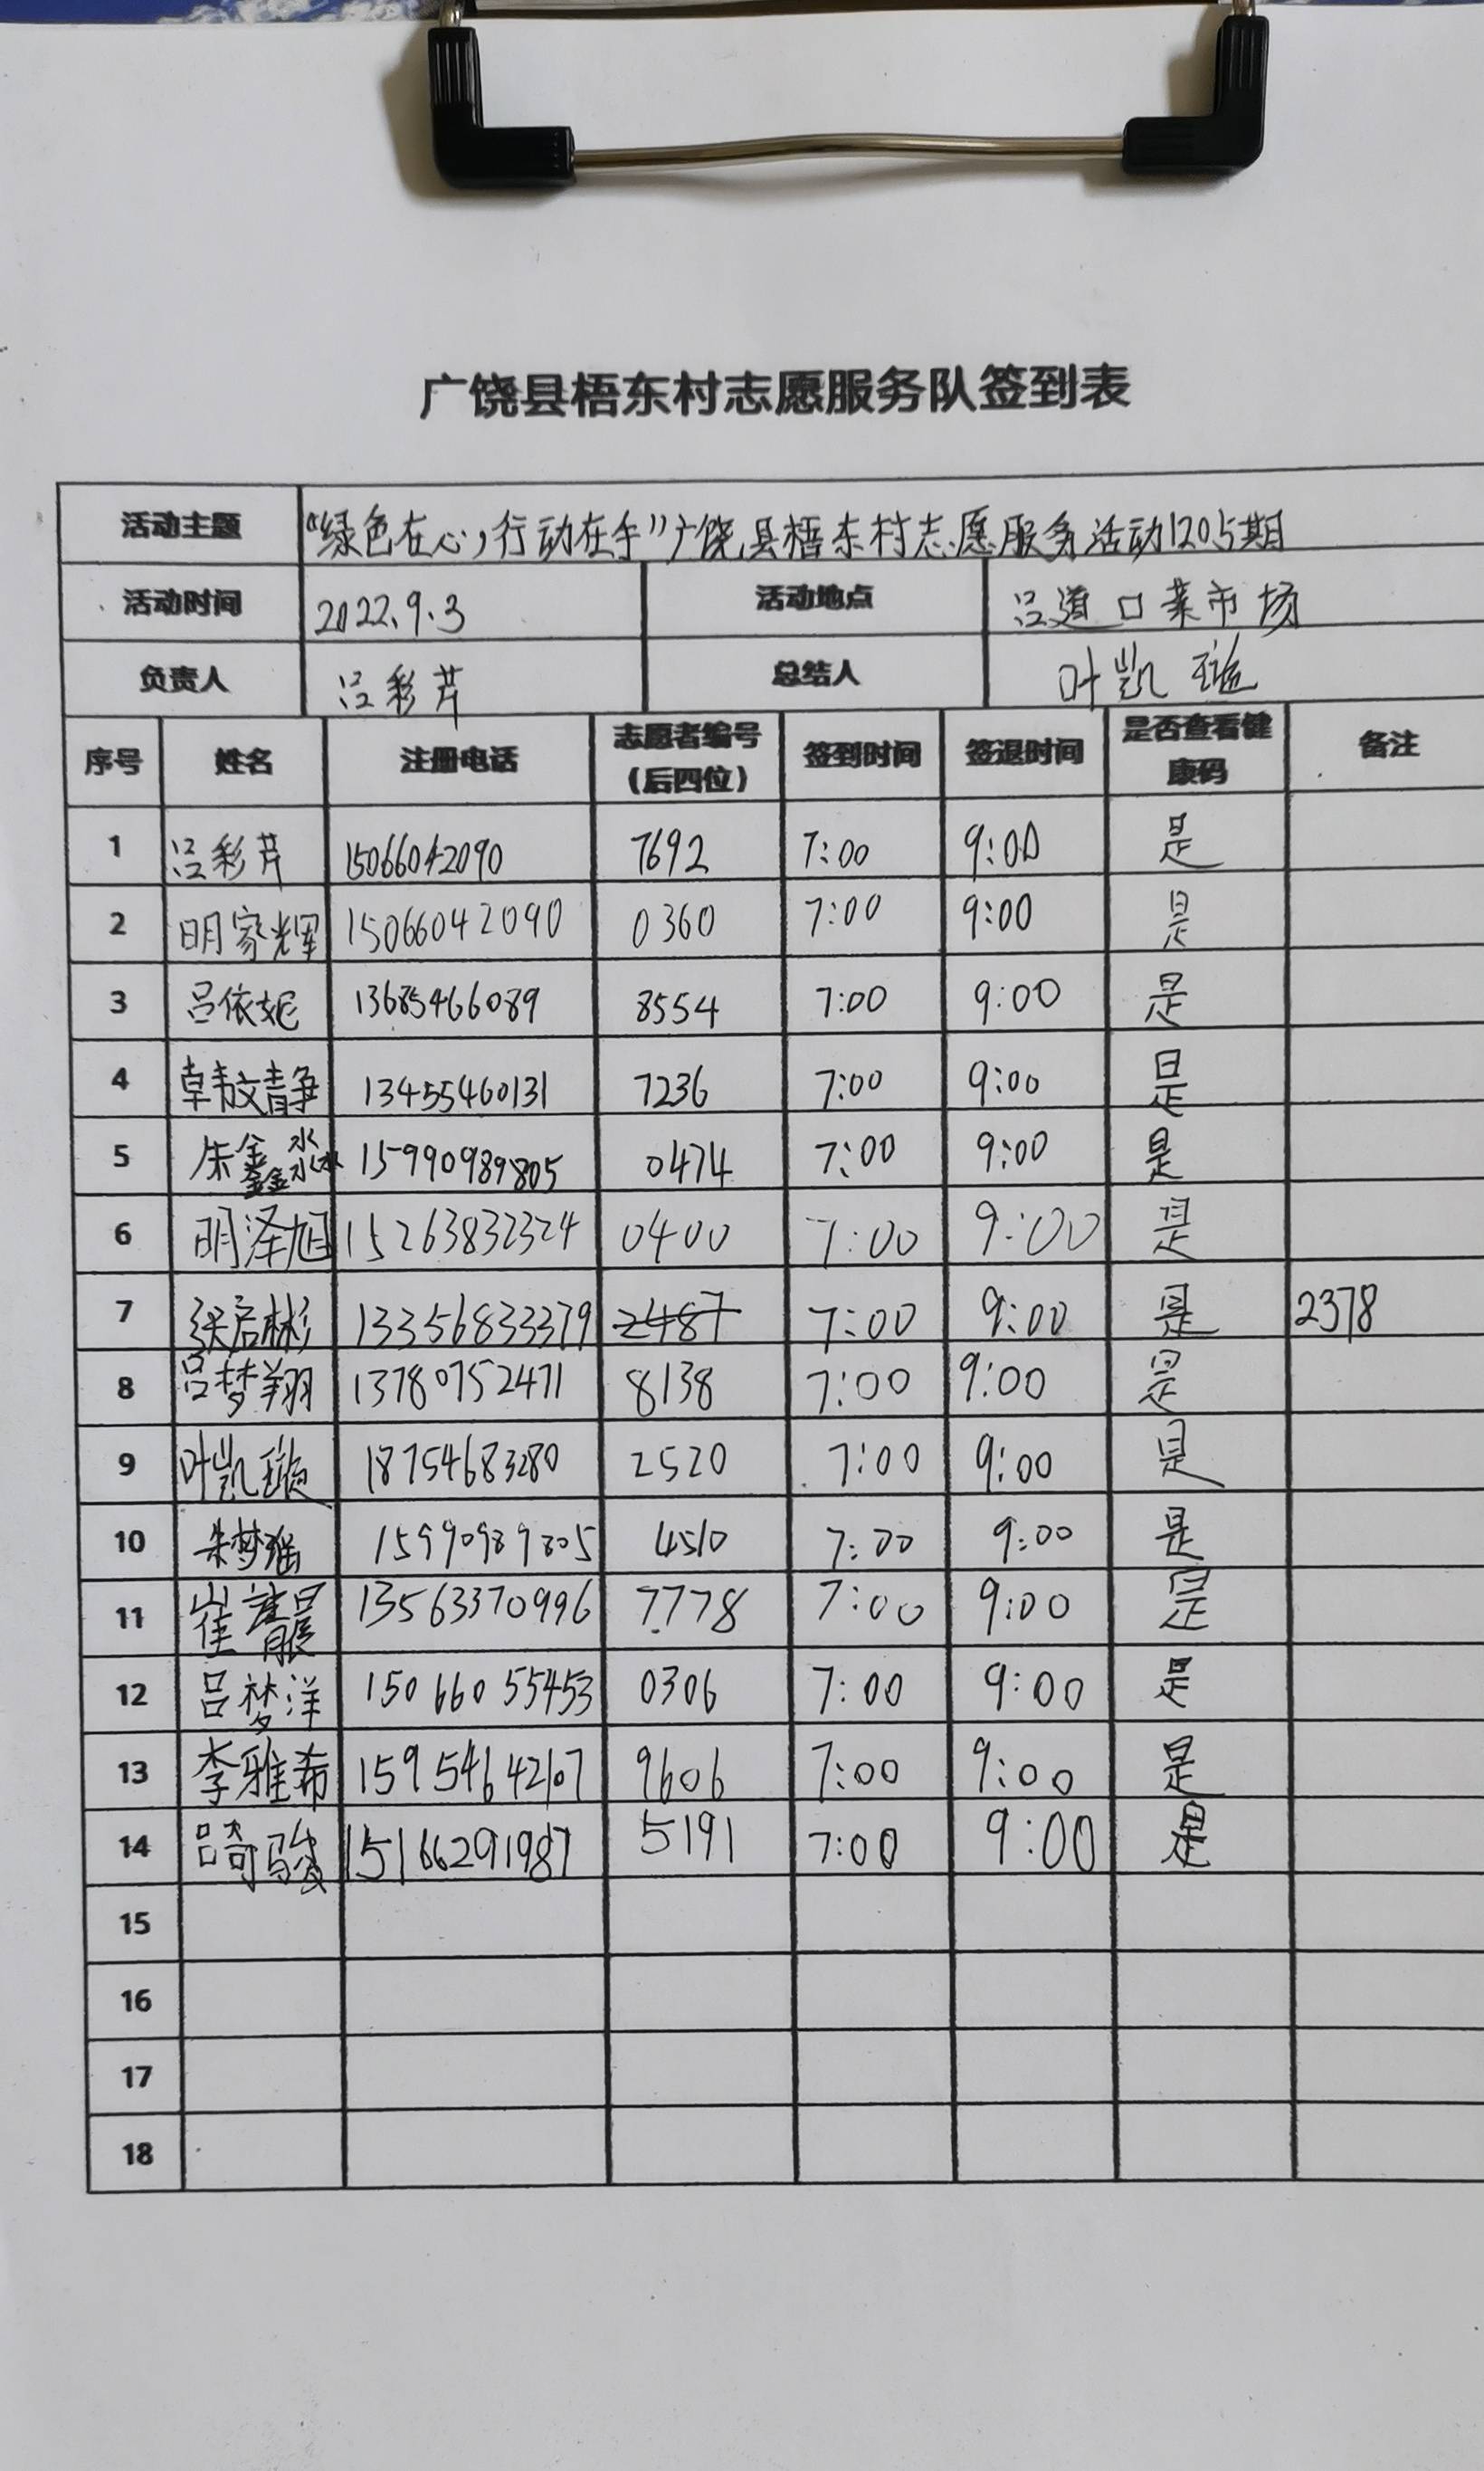 广饶县梧东村志愿服务队签到表
活动主题 “绿色在心，行动在手”广饶县梧东村志愿服务活动1205期
活动时间 2022.9.3 活动地点 吕道口菜市场
负责人 吕彩芹 总结人 叶凯璇
序号 姓名 注册电话 志愿者编号（后四位） 签到时间 签退时间 是否查看健康码 备注
1 吕彩芹 15066042090 7692 7:00 9:00 是
2 明家辉 15066042090 0360 7:00 9:00 是
3 吕依妮 13685466089 8554 7:00 9:00 是
4 韩文静 13455460131 7236 7:00 9:00 是
5 朱鑫淼 15990989805 0474 7:00 9:00 是
6 明泽旭 15263832324 0400 7:00 9:00 是
7 张启彬 13356833379 2487 7:00 9:00 是 2378
8 吕梦翔 13780752471 8138 7:00 9:00 是
9 叶凯璇 18754683280 2520 7:00 9:00 是
10 朱梦瑶 15990989805 4510 7:00 9:00 是
11 崔 13563370996 7778 7:00 9:00 是
12 吕梦洋 15066055453 0306 7:00 9:00 是
13 李雅希 15954642107 9606 7:00 9:00 是
14 吕奇骏 15166291987 5191 7:00 9:00 是
15
16
17
18